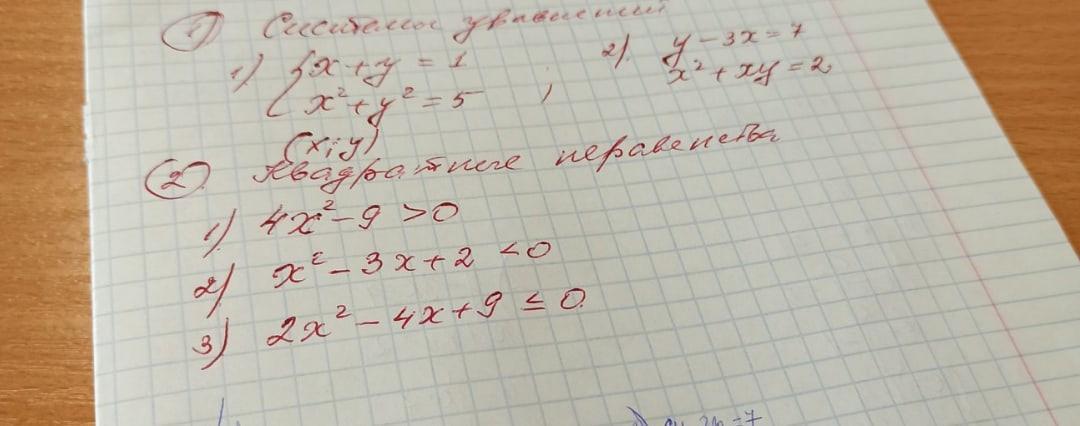 1) Системы уравнений
1) { x + y = 1
x² + y² = 5 ;
2). y - 3x = 7
x² + xy = 2
(x; y)
2). Квадратные неравенства
1). 4x² - 9 > 0
2) x² - 3x + 2 < 0
3) 2x² - 4x + 9 ≤ 0.